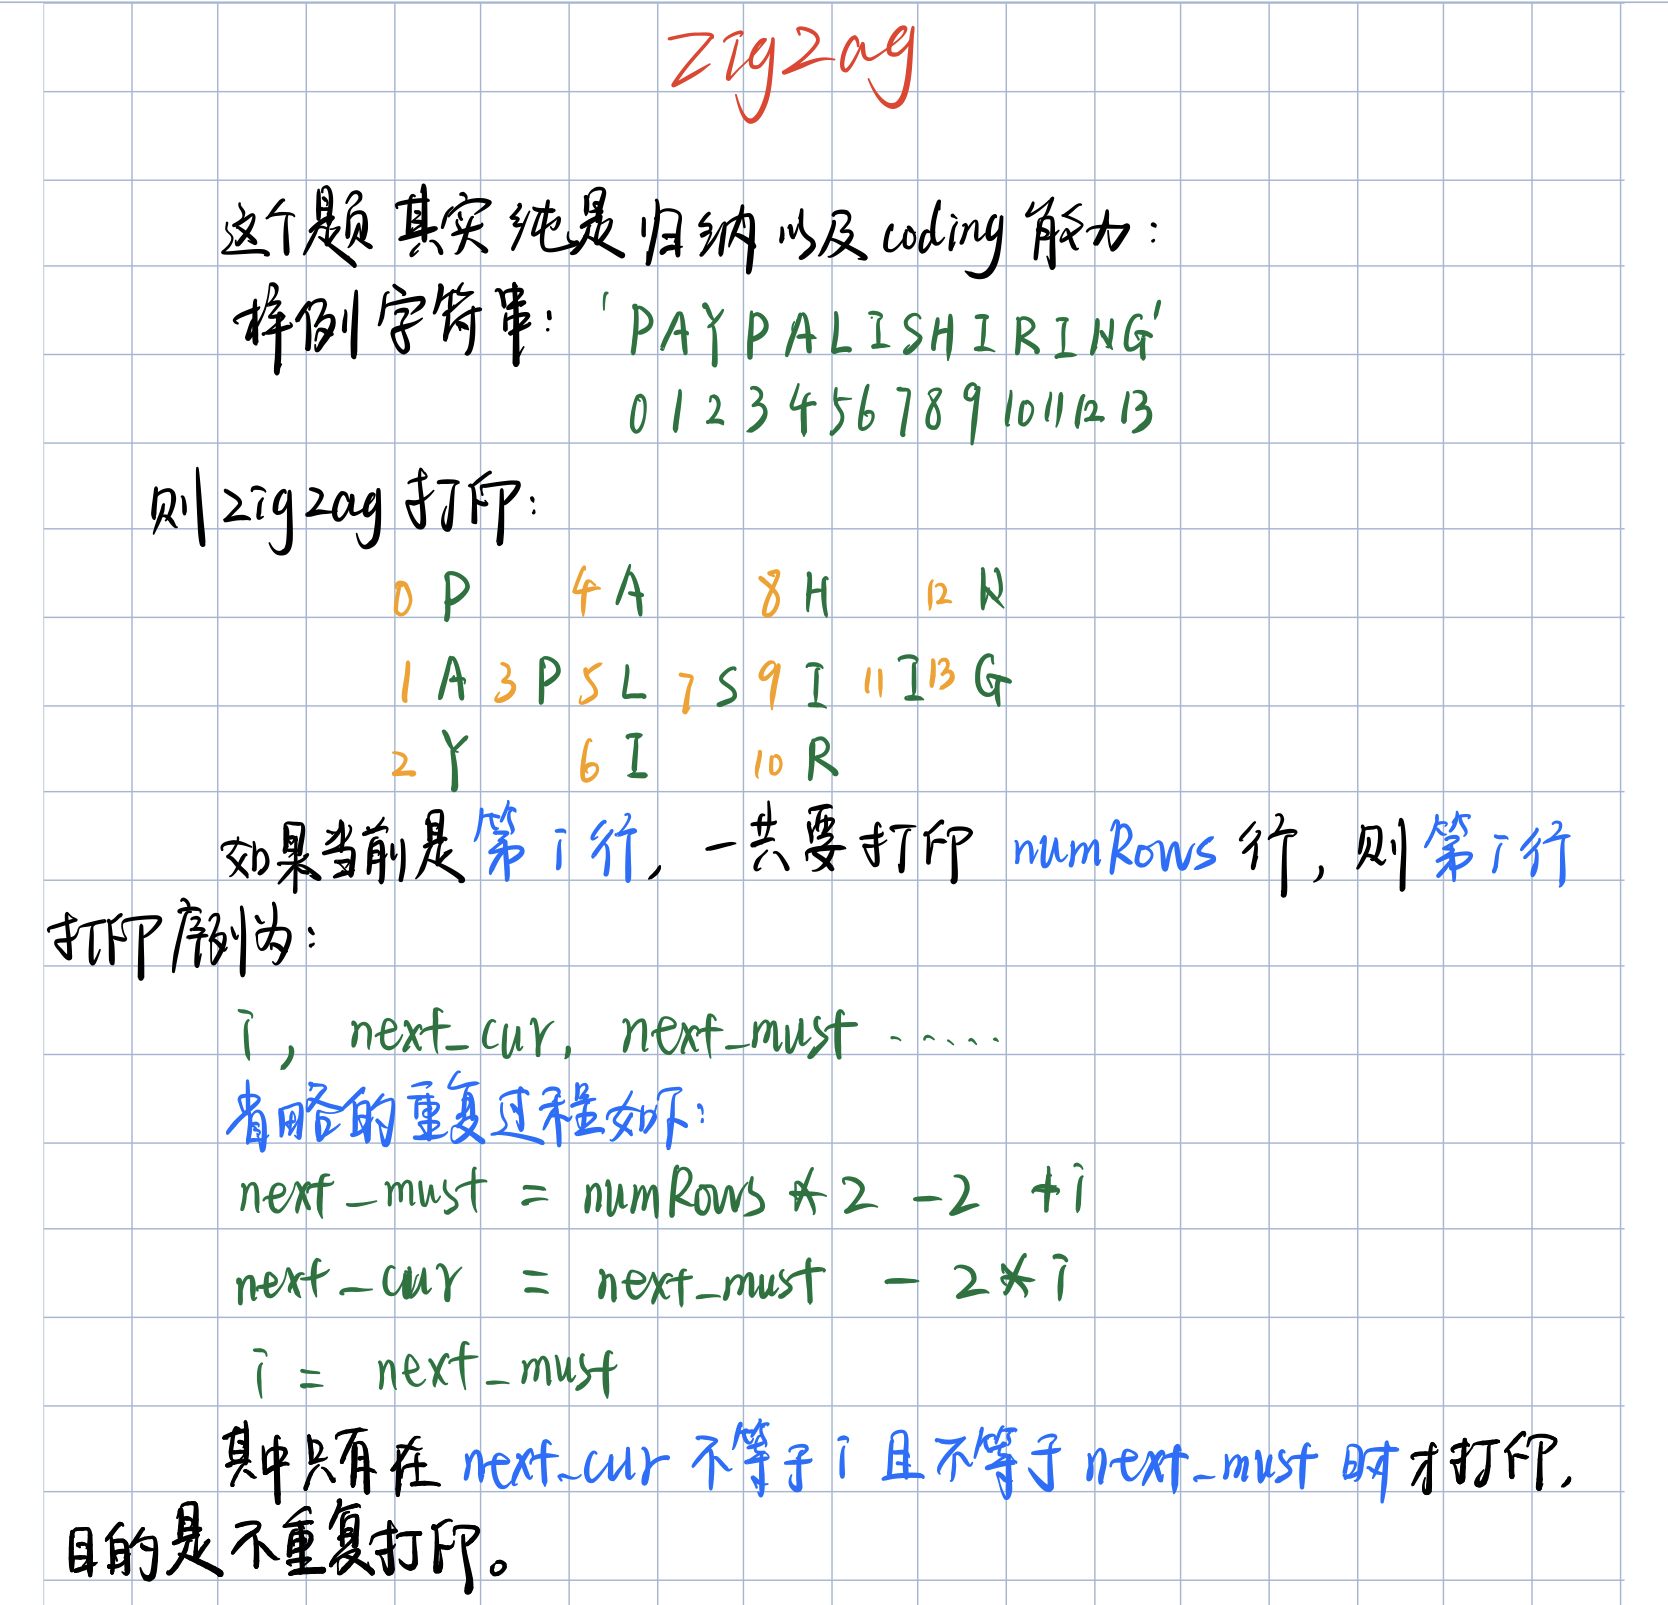 Zigzag
这个题其实纯是归纳以及coding能力：
样例字符串：'PAYPALISHIRING'
0 1 2 3 4 5 6 7 8 9 10 11 12 13
则zigzag打印：
0 P 4 A 8 H 12 N
1 A 3 P 5 L 7 S 9 I 11 I 13 G
2 Y 6 I 10 R
如果当前是第i行，一共要打印numRows行，则第i行
打印序列为：
i, next_cur, next_must .....
省略的重复过程如下：
next_must = numRows * 2 - 2 + i
next_cur = next_must - 2 * i
i = next_must
其中只有在next_cur不等于i且不等于next_must时才打印，
目的是不重复打印。